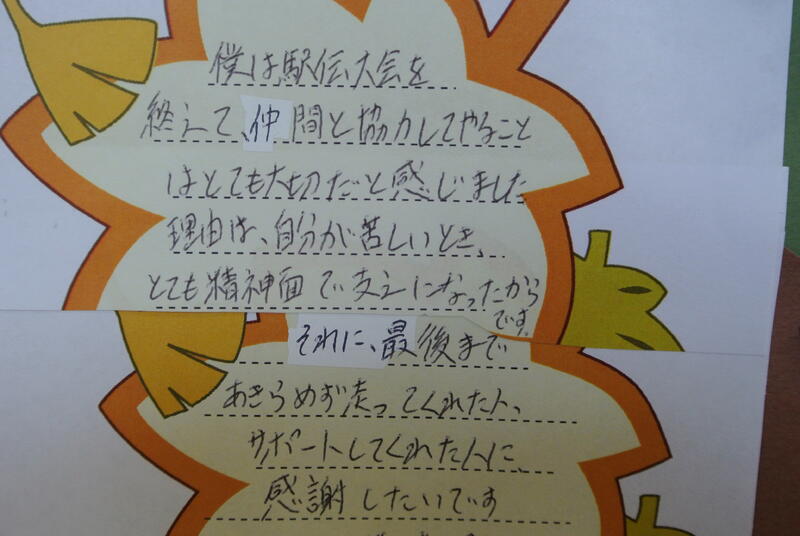 僕は駅伝大会を
終えて、仲間と協力してやること
はとても大切だと感じました
理由は、自分が苦しいとき、
とても精神面で支えになったから
です。
それに、最後まで
あきらめず走ってくれた人、
サポートしてくれた人に、
感謝したいです